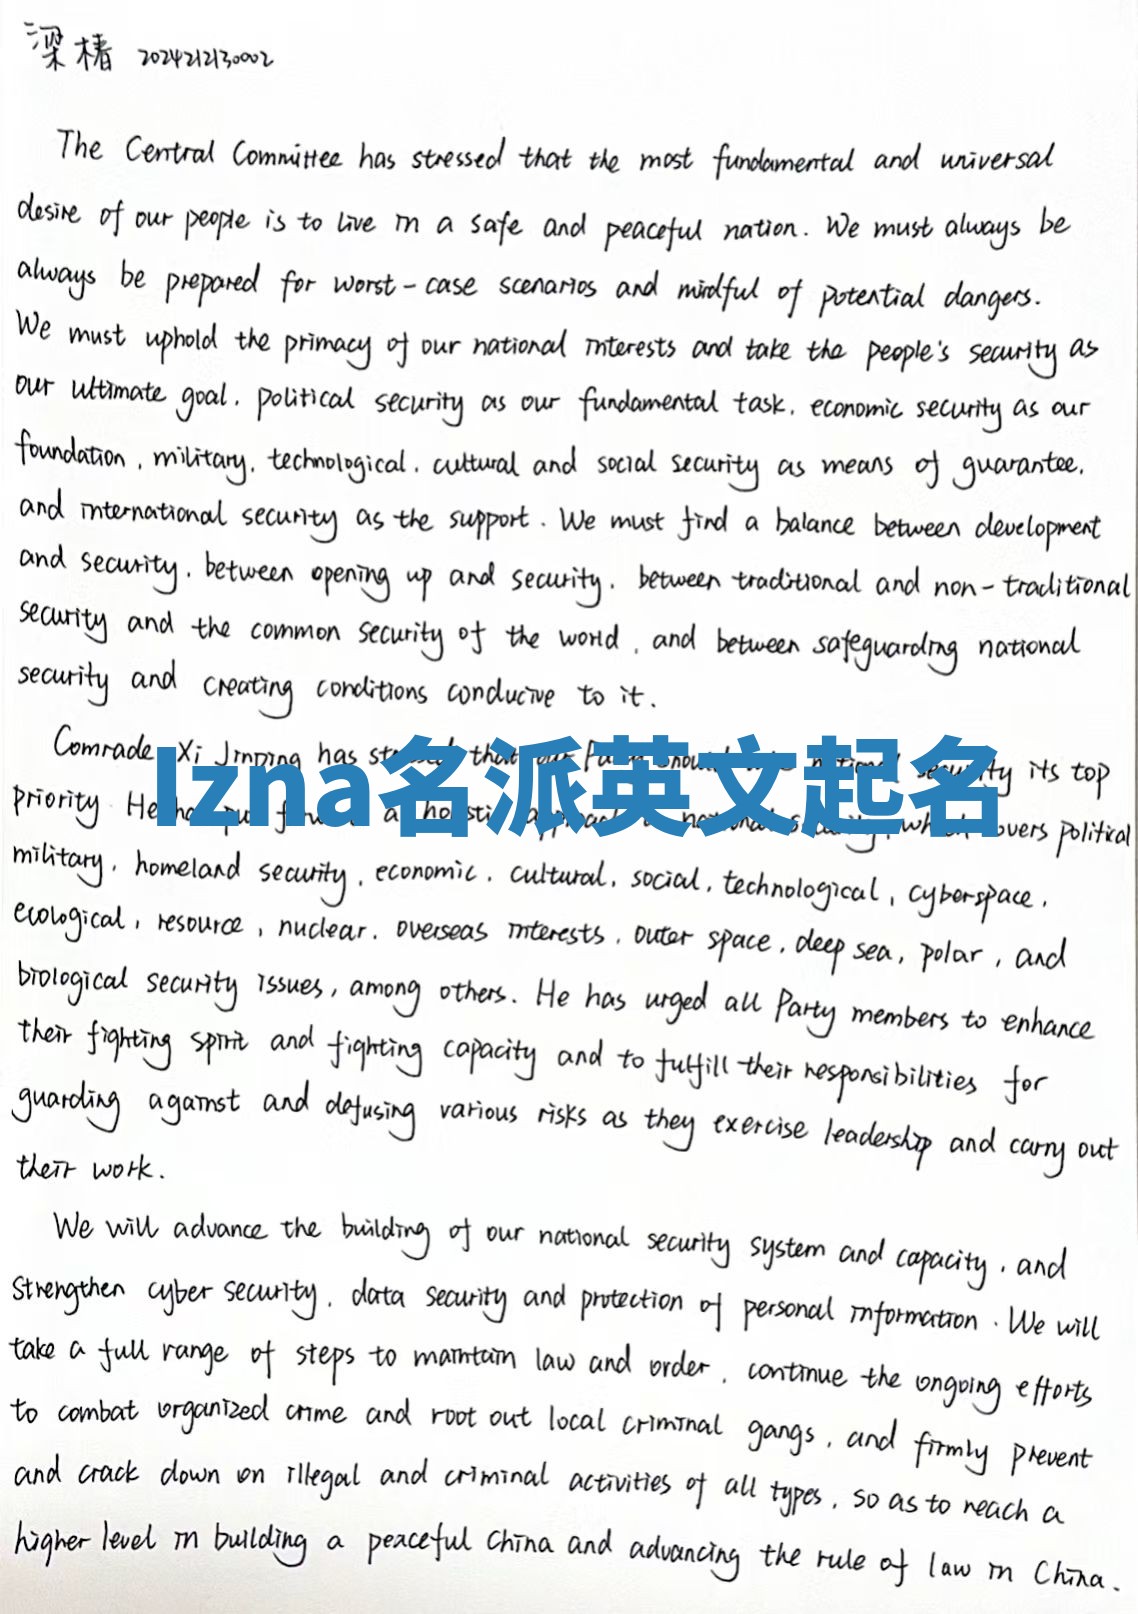 梁椿 2024212130002
The Central Committee has stressed that the most fundamental and universal
desire of our people is to live in a safe and peaceful nation. We must always be
always be prepared for worst-case scenarios and mindful of potential dangers.
We must uphold the primacy of our national interests and take the people's security as
our ultimate goal, political security as our fundamental task, economic security as our
foundation, military, technological, cultural and social security as means of guarantee,
and international security as the support. We must find a balance between development
and security, between opening up and security, between traditional and non-traditional
security and the common security of the world, and between safeguarding national
security and creating conditions conducive to it.
Comrade Xi Jinping has that its top
Izna名派英文起名
priority. He a political
military, homeland security, economic, cultural, social, technological, cyberspace,
ecological, resource, nuclear, overseas interests, outer space, deep sea, polar, and
biological security issues, among others. He has urged all Party members to enhance
their fighting spirit and fighting capacity and to fulfill their responsibilities for
guarding against and defusing various risks as they exercise leadership and carry out
their work.
We will advance the building of our national security system and capacity, and
strengthen cyber security, data security and protection of personal information. We will
take a full range of steps to maintain law and order, continue the ongoing efforts
to combat organized crime and root out local criminal gangs, and firmly prevent
and crack down on illegal and criminal activities of all types, so as to reach a
higher level in building a peaceful China and advancing the rule of law in China.